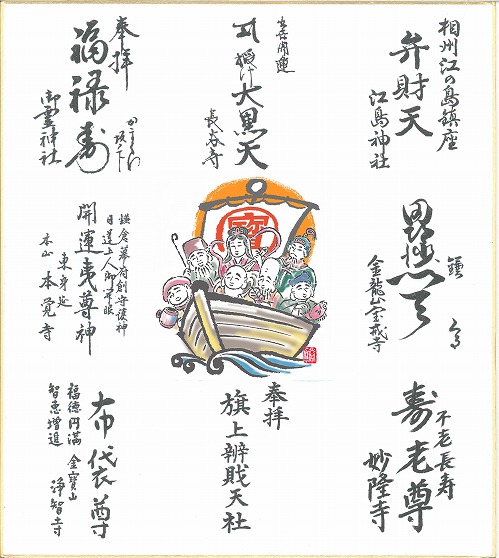 相州江の島鎮座
弁財天
江島神社
出世開運
大黒天
長谷寺
奉拝
福禄寿
御霊神社
宝
毘沙門天
金龍山宝戒寺
鎌倉幕府創守護神
日道上人御尊眼
開運夷尊神
東身延
本山 本覚寺
不老長寿
寿老尊
妙隆寺
奉拝
旗上辨財天社
布袋尊
福徳円満 金寶山
智恵増進 浄智寺